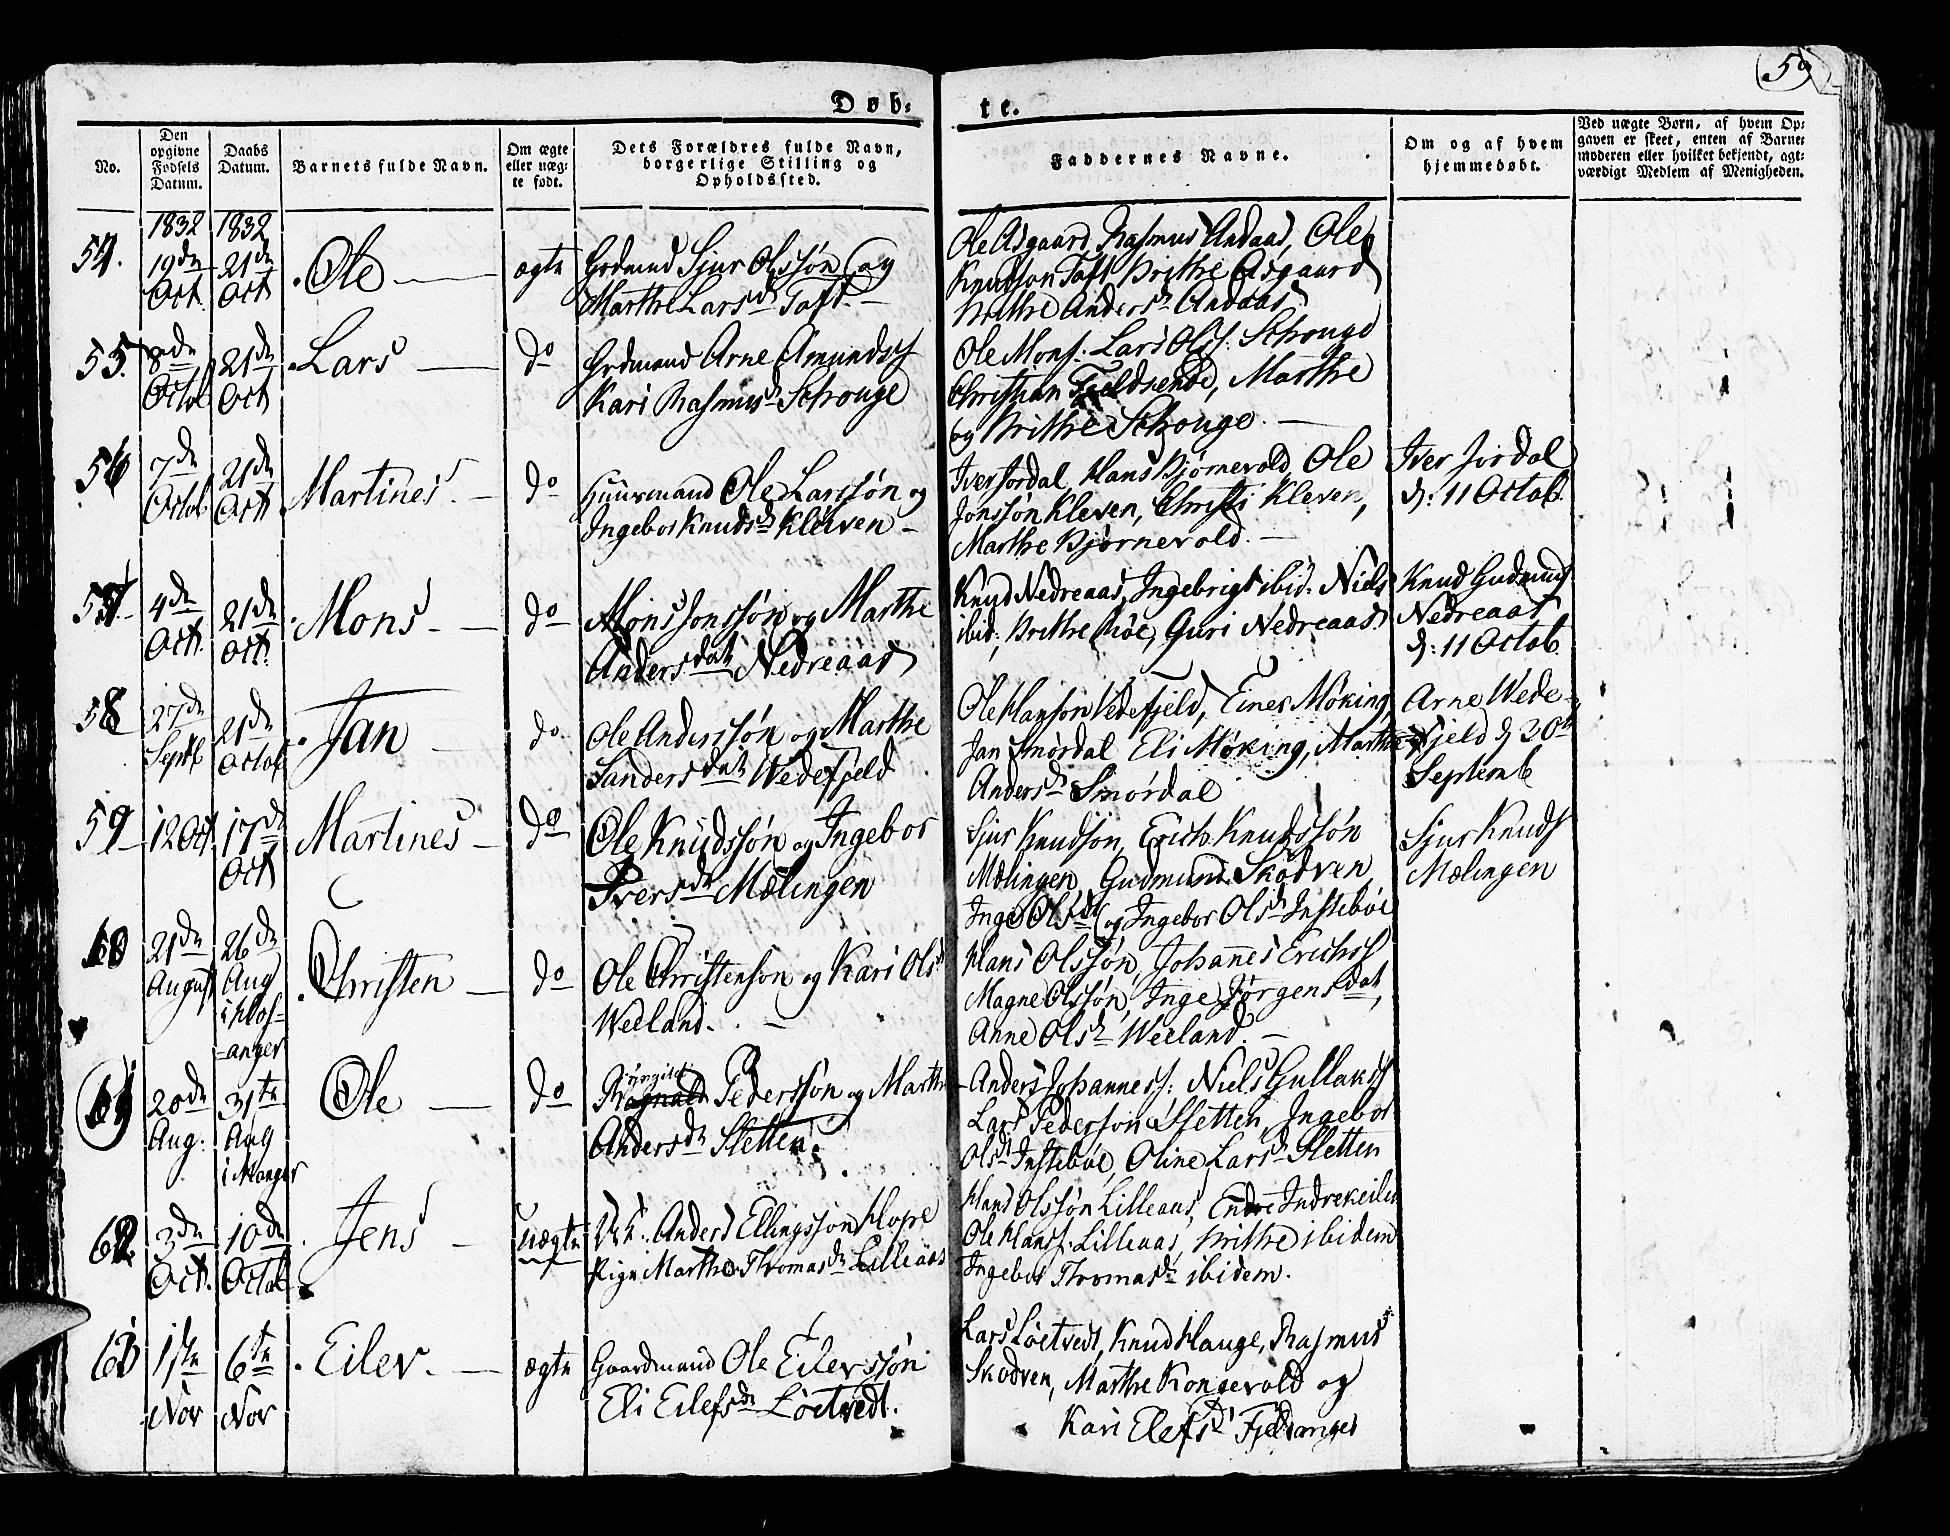 59
Døb-
te.
No.
Den opgivne Fødsels Datum.
Daabs Datum.
Barnets fulde Navn.
Om ægte eller uæg-te født.
Dets Forældres fulde Navn, borgerlige Stilling og Opholdssted.
Faddernes Navne.
Om og af hvem hjemmedøbt.
Ved uægte Børn, af hvem Op-
gaven er skeet, enten af Barne-
moderen eller hvilket bekjendt, agt-
værdigt Medlem af Menigheden.
1832 1832
54. 19de Oct. 21de Oct Ole ægte
Grdmand Sjur Olssøn og
Marthe Larsd. Toft.
Ole Asgaard, Rasmus Andaas, Ole
Knudson Toft Brithe Asgaard
Brithe Andersd. Andaas
55. 8de Octob 21de Oct Lars do
Grdmand Arne Amunds
Kari Rasmusd. Schouge
Ole Mons. Lars Olss. Schouge
Christian Fjeldsende, Marthe
og Brithe Schouge.
56 7de Octob 21de Oct Martines do
Huusmand Ole Larssøn og
Ingebor Knudsd. Kleiven
Iver Jordal, Hans Bjørnevold, Ole
Jonssøn Kleven, Christi Kleven,
Marthe Bjørnevold.
Iver Jordal
d: 11 Octob.
57 4de Oct. 21de Oct. Mons do
Mons Jonssøn og Marthe
Andersdat Nedreaas
Knud Nedreaas, Ingebrigt ibid. Niels
ibid; Brithe Møe, Guri Nedreaas
Knud Gudmus
Nedreaas
d: 11 Octob.
58 27de Septb 21de Octob Jan do
Ole Anderssøn og Marthe
Sandersdat Wedefjeld
Ole Hansøn Vedefjeld, Einer Møking,
Jan Smørdal Eli Møking, Marthe
Andersd. Smørdal
Arne Wede-
fjeld d 30te
Septemb
59 12 Oct. 17de Oct Martines do
Ole Knudssøn og Ingebor
Iversd. Mælingen
Sjur Knudsøn, Erich Knudssøn
Mælingen, Gudmund Skodven,
Inge Olsdt og Ingebor Olsd. Instebøe
Sjur Knuds
Mælingen
60 21de August 26de Aug i Hos-
-anger Christen do
Ole Christenson og Kari Olsd
Weeland.
Hans Olssøn, Johannes Erichss
Magne Olssøn, Inge Jørgensdat,
Anne Olsd. Weeland.
61 20de Aug. 31te Aug i Manger Ole do
Pedersson og Marthe
Andersd. Sletten.
Anders Johanness: Niels Gullakss
Lars Pedersøn Sletten, Ingebor
Olsd. Instebøe, Oline Larsd. Sletten
62 3de Oct. 10de Octob Jens uægte
Anders Ellingssøn Hope
Pige Marthe Thomasd. Lilleaas
Hans Olssøn Lilleaas, Endre Indrekeilen
Ole Hanss. Lilleaas, Brithe ibidem
Ingebor Thomasd. ibidem.
63 1ste Nov 6te Nov Eiler. ægte
Gaardmand Ole Eilerssøn
Eli Eilefsd. Løetvedt.
Lars Løetvedt, Knud Hauge, Rasmus
Skodven, Marthe Kongevold og
Kari Elefsd. Fjeldanger